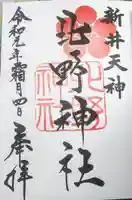 新井天神
北野神社
北野
神社
令和元年霜月四日
奉拝